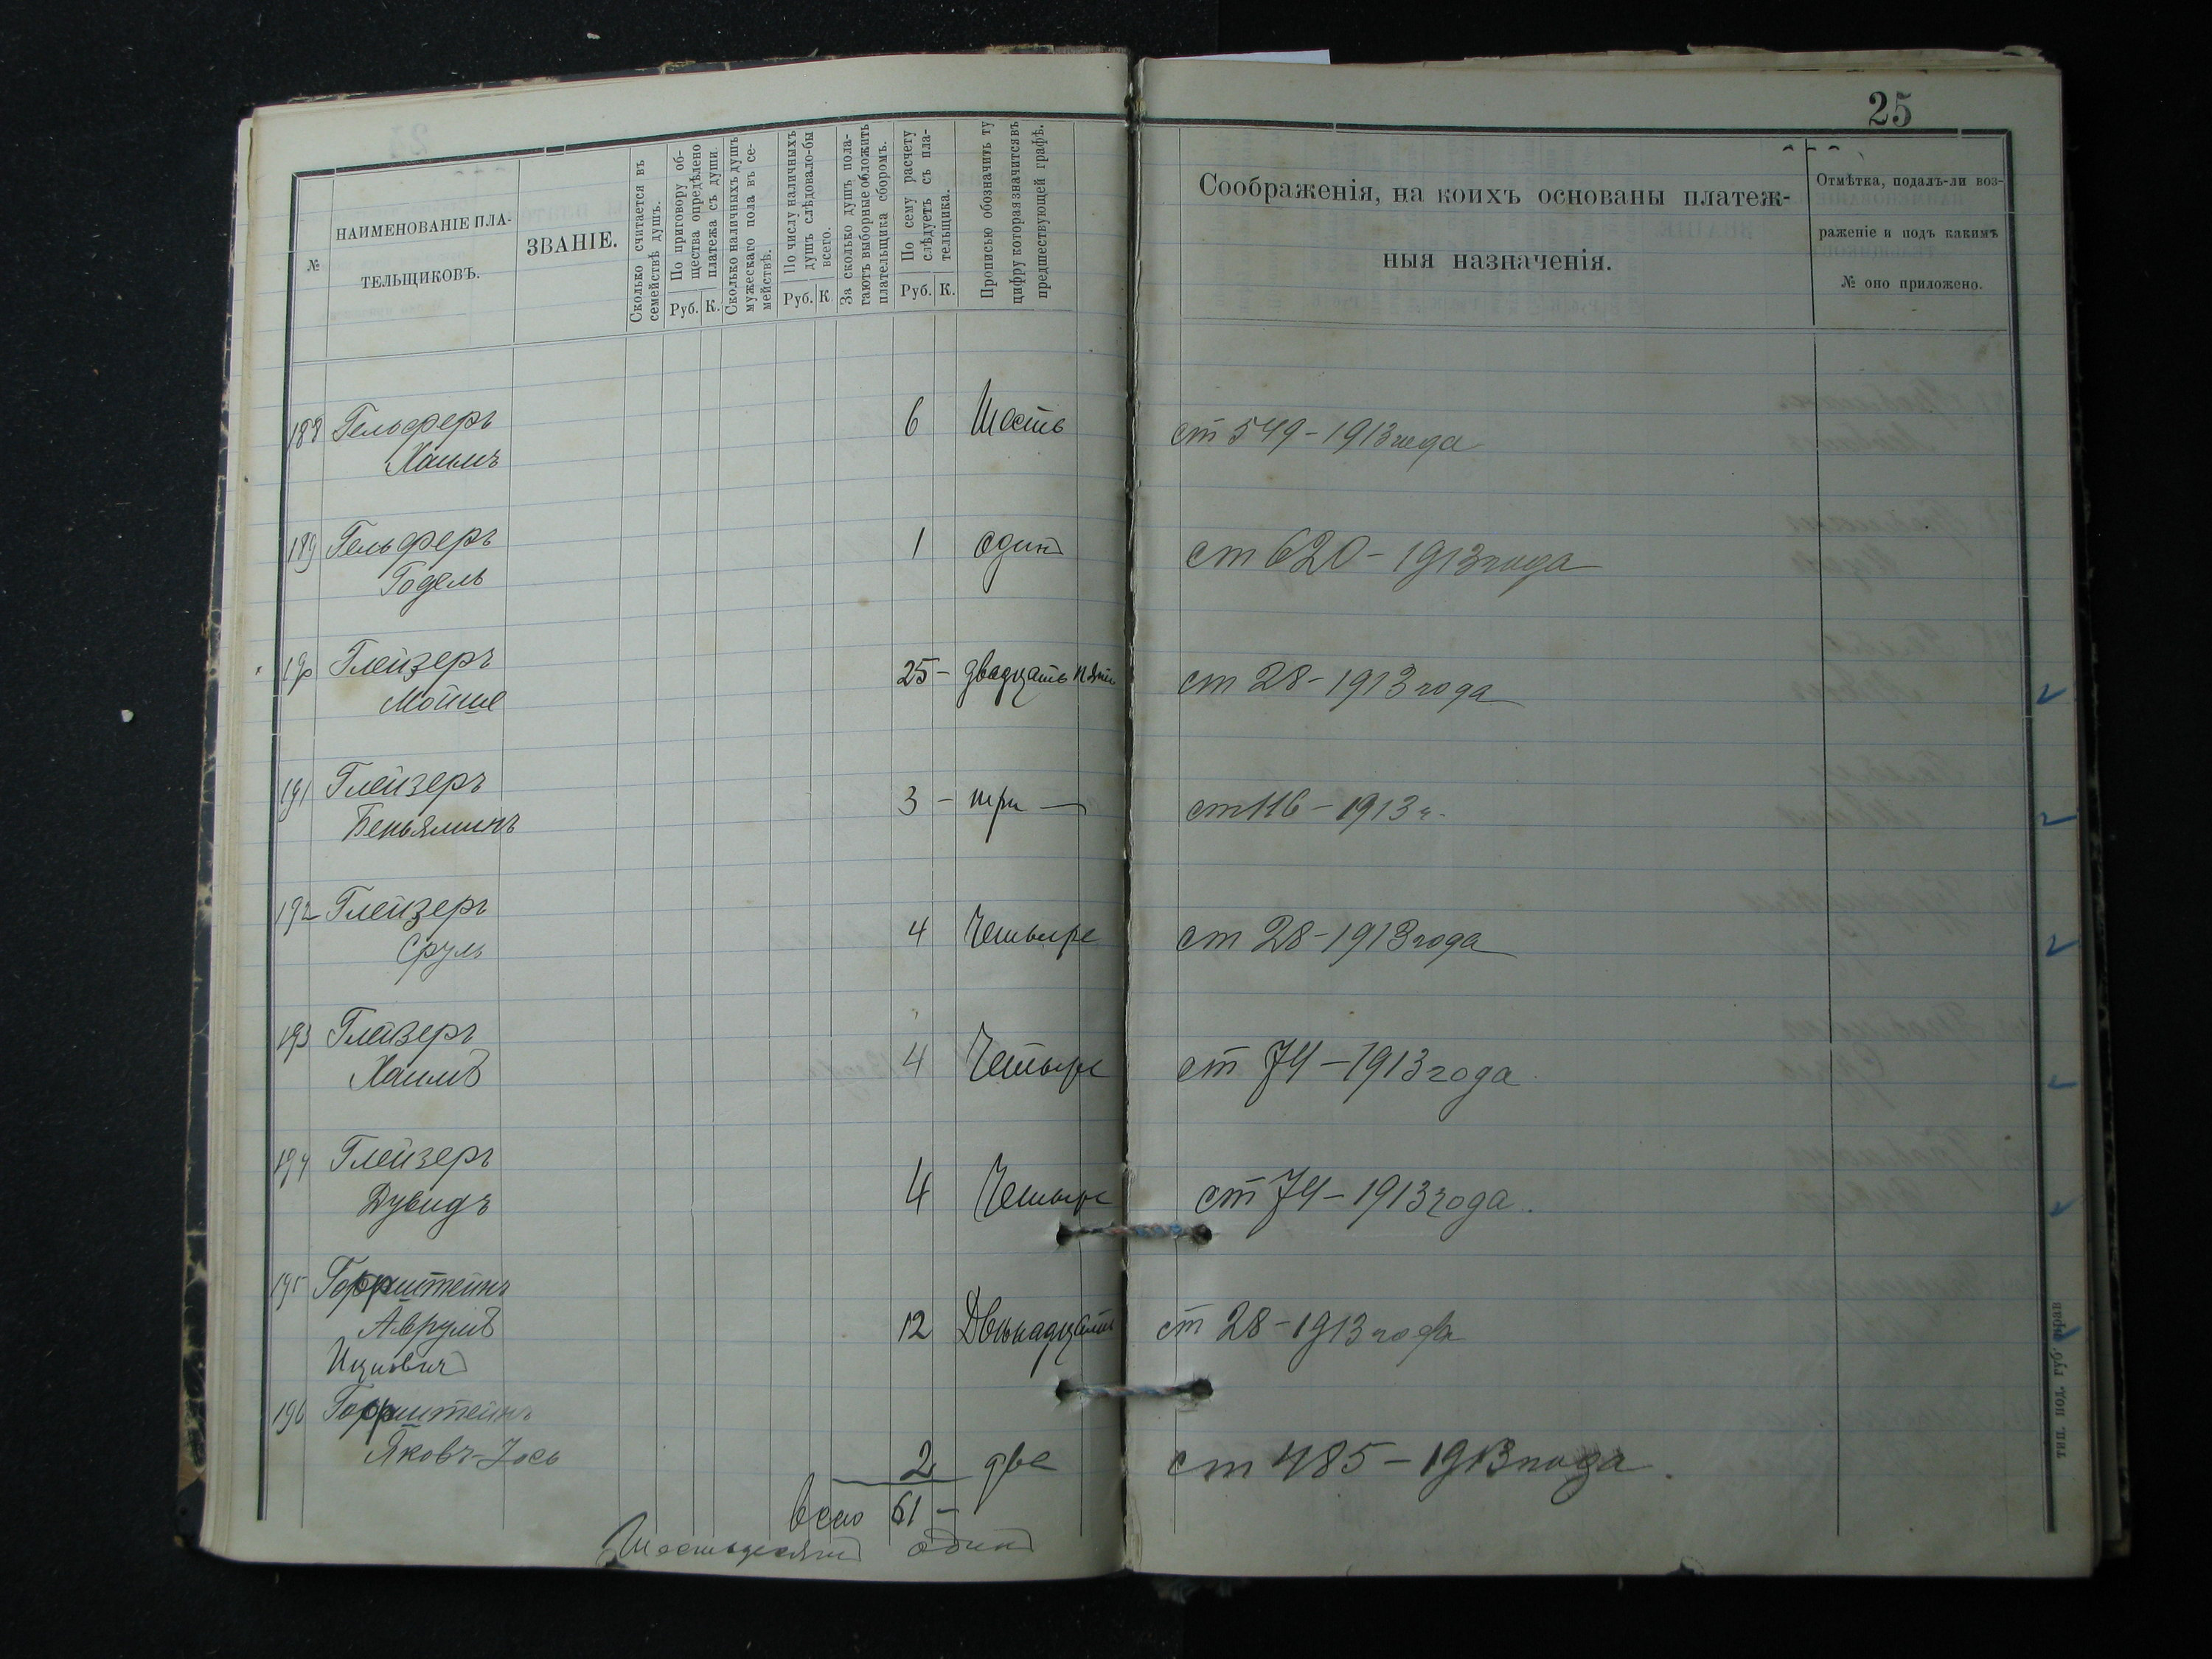 25
№
НАИМЕНОВАНІЕ ПЛА-
ТЕЛЬЩИКОВЪ.
ЗВАНІЕ.
Сколько считается въ
семействѣ душъ.
По приговору об-
щества опредѣлено
платежа съ души.
Руб. К.
Сколько наличныхъ душъ
мужескаго пола въ се-
мействѣ.
По числу наличныхъ
душъ слѣдовало-бы
всего.
Руб. К.
За сколько душъ пола-
гаютъ выборные обложить
плательщика сборомъ.
По сему расчету
слѣдуетъ съ пла-
тельщика.
Руб. К.
Прописью обозначить ту
цифру которая значится въ
предшествующей графѣ.
Соображенія, на коихъ основаны платеж-
ныя назначенія.
Отмѣтка, подалъ-ли воз-
раженіе и подъ какимъ
№ оно приложено.
188 Гельферъ 6 Шесть ст 549-1913 года
Хаимъ
189 Гельферъ 1 один ст 620-1913 года
Годель
190 Глейзеръ 25- двадцать пять ст 28-1913 года
Мойше
191 Глейзеръ 3 - три — ст 116-1913 г.
Беньяминъ
192 Глейзеръ 4 Четыре ст 28-1913 года
Сруль
193 Глейзеръ 4 Четыре ст 74-1913 года
Хаимъ
194 Глейзеръ 4 Четыре ст 74-1913 года.
Дувидъ
195
Аврумъ 12 Двѣнадцать ст 28-1913 года
Ицкович
196
Яковъ-Іось 2 две ст 485-1913 года.
всего 61 -
Шестьдесят один
тип. под. губ. прав